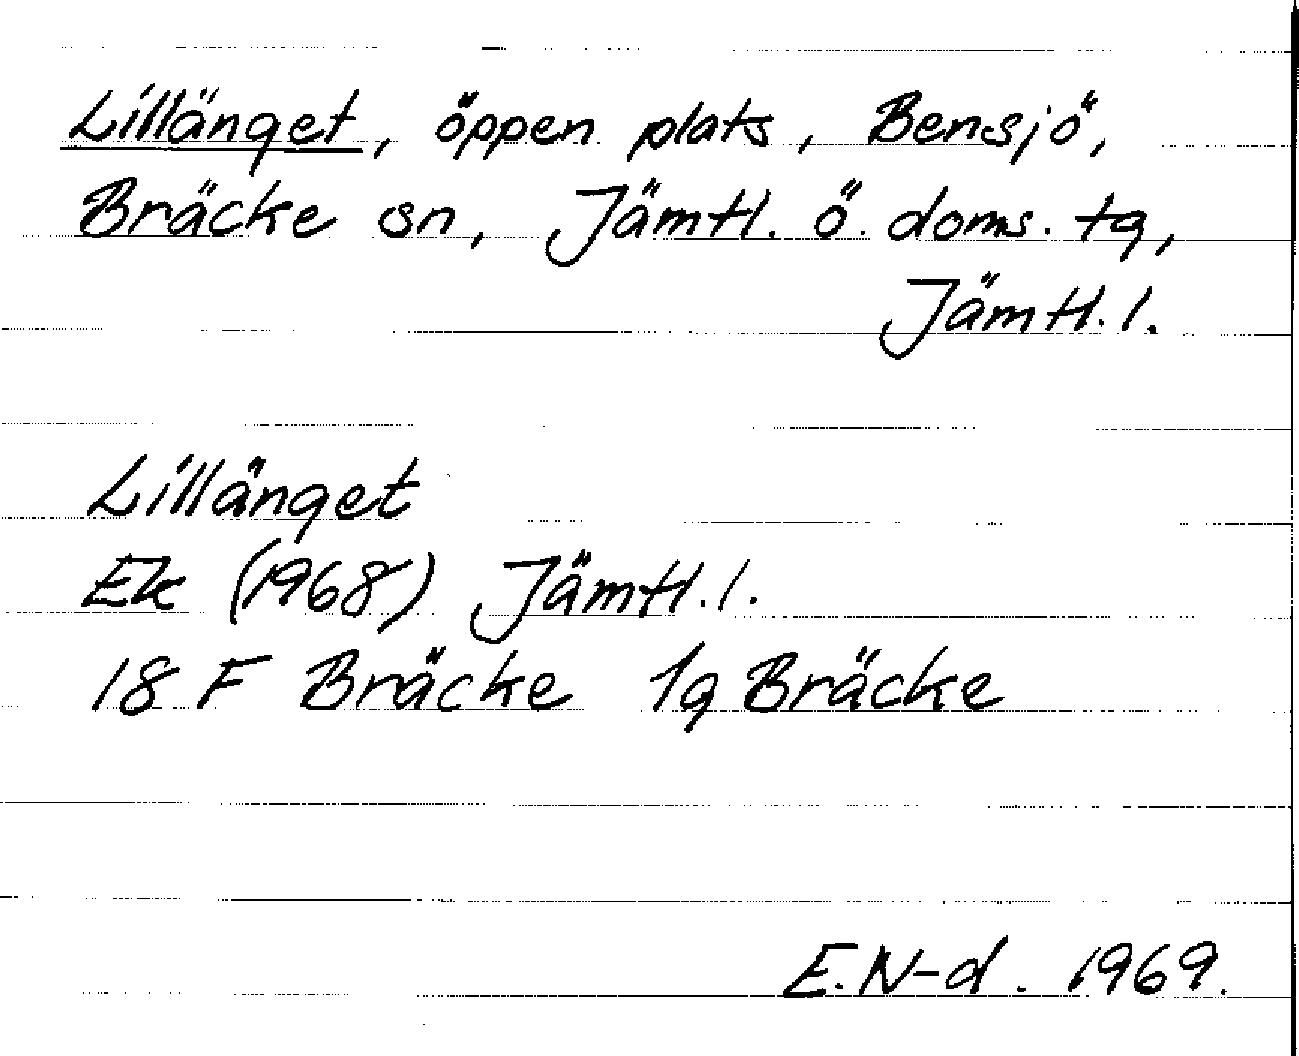 Lillänget, öppen plats, Bensjö,
Bräcke sn, Jämtl. ö. doms. tg,
Jämtl. l.
Lillänget
Ek (1968) Jämtl. l.
18 F Bräcke 1g Bräcke
E. N-d. 1969.